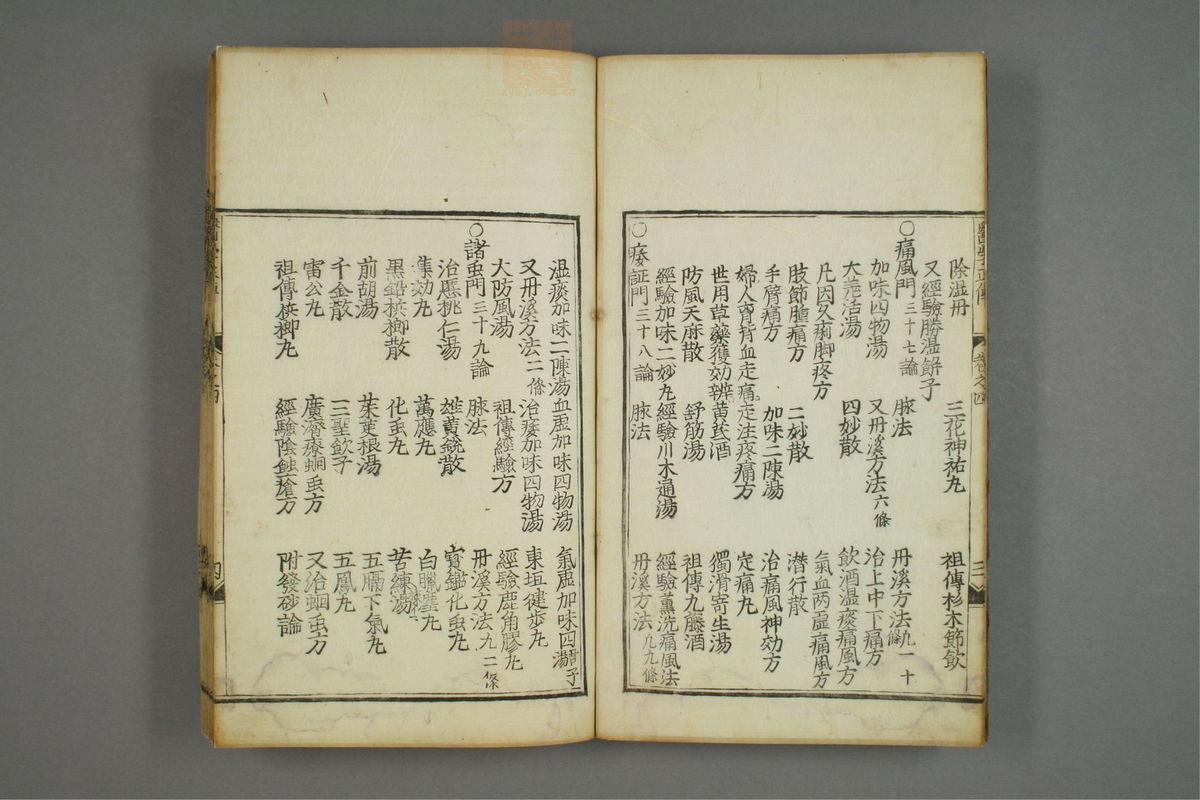 除湿丹 三花神祐丸 祖傳杉木節飲
又經驗勝湿餅子
○痛風門三十七論 脉法 丹溪方法一十九條
加味四物湯 又丹溪方法六條 治上中下痛方
大羗活湯 四妙散 飲酒湿痰痛風方
凡因久痢脚疼方 氣血两虚痛風方
肢節腫痛方 二妙散 潜行散
手臂痛方 加味二陳湯 治痛風神効方
婦人背血走痛 走注疼痛方 定痛丸
世用草藥獲効辨 黄茋酒 獨滑寄生湯
防風天麻散 舒筋湯 祖傳九藤酒
經驗加味二妙丸 經驗川木通湯 經驗薰洗痛風法
○痿証門三十八論 脉法 丹溪方法九條
湿痰加味二陳湯 血虚加味四物湯 氣虚加味四君子湯
又丹溪方法二條 治痿加味四物湯 東垣健步丸
大防風湯 祖傳經驗方 經驗鹿角膠丸
○諸虫門三十九論 脉法 丹溪方法九二條
治䘌桃仁湯 雄黄銳散 寳鑑化虫丸
集効丸 萬應丸 白臘塵丸
黒鉛梹榔散 化虫丸 苦練湯
前胡湯 茱萸根湯 五膈下氣丸
千金散 三聖飲子 五鳳丸
雷公丸 廣濟療蛔虫方 又治蛔虫方
祖傳梹榔丸 經驗陰蝕瘡方 附發砂論
醫學正傳 卷之四 三
四